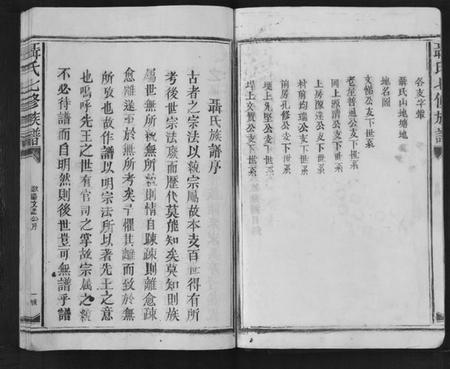 各支字輩
聶氏山地墳地
地名圖
支悌公支下世系
老屋普通公支下世系
同上源清公支下世系
上房源達公支下世系
村前均瑞公支下世系
前房孔修公支下世系
堤上先堅公支下世系
堤上文質公支下世系
聶氏七修族譜
聶氏族譜序
古者之宗法以統宗屬故本支百世得有所
考後世宗法廢而歷代莫能知矣莫知則族
屬世無所統無所統則情自踈踈則離愈踈
愈離遂至於無所考矣予懼其離而致於無
所攷也故作譜以明宗法所以著先王之意
也嗚呼先王之世有官司之掌故宗屬之統
不必待譜而自明然則後世豈可無譜乎譜
聶氏七修族譜
一號